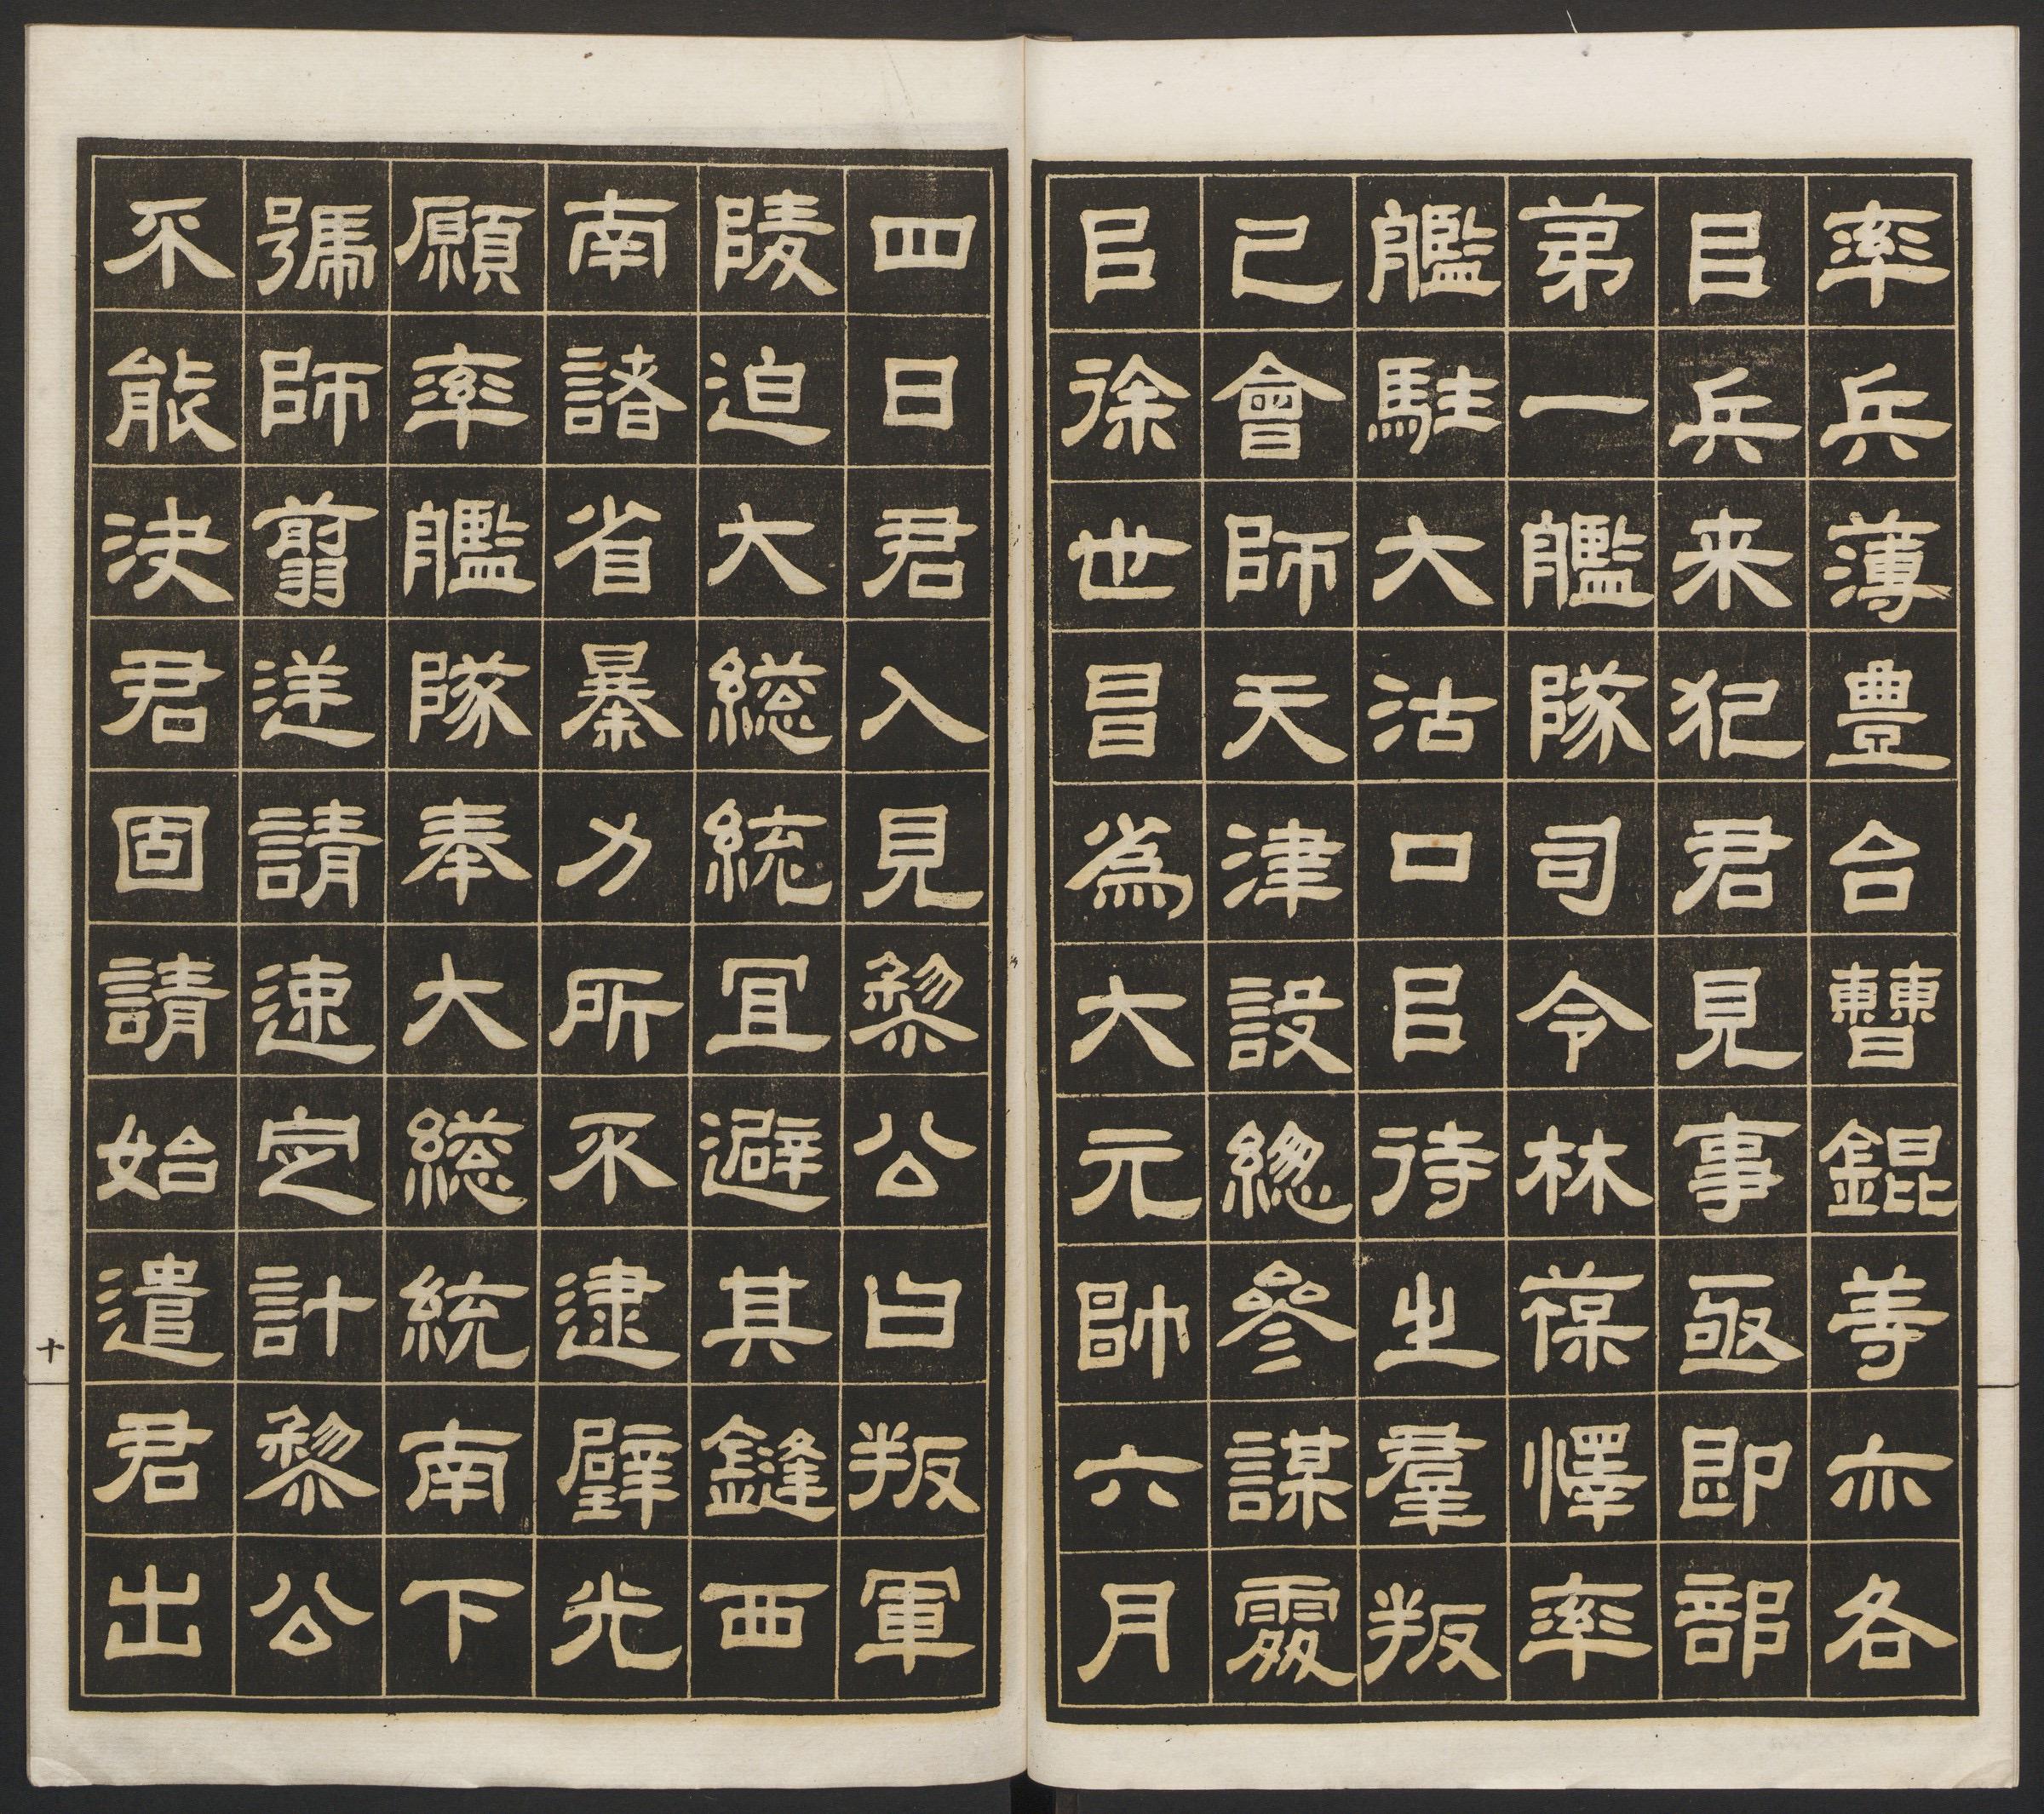 率兵薄豊台曹錕等亦各
㠯兵来犯君見事亟即部
弟一艦隊司令林葆懌率
艦駐大沽口㠯待之羣叛
已會師天津設總參謀處
㠯徐世昌為大元帥六月
四日君入見黎公曰叛軍
陵迫大總統宜避其鋒西
南諸省暴力所不逮璧光
願率艦隊奉大總統南下
號師翦逆請速定計黎公
不能決君固請始遣君出
十